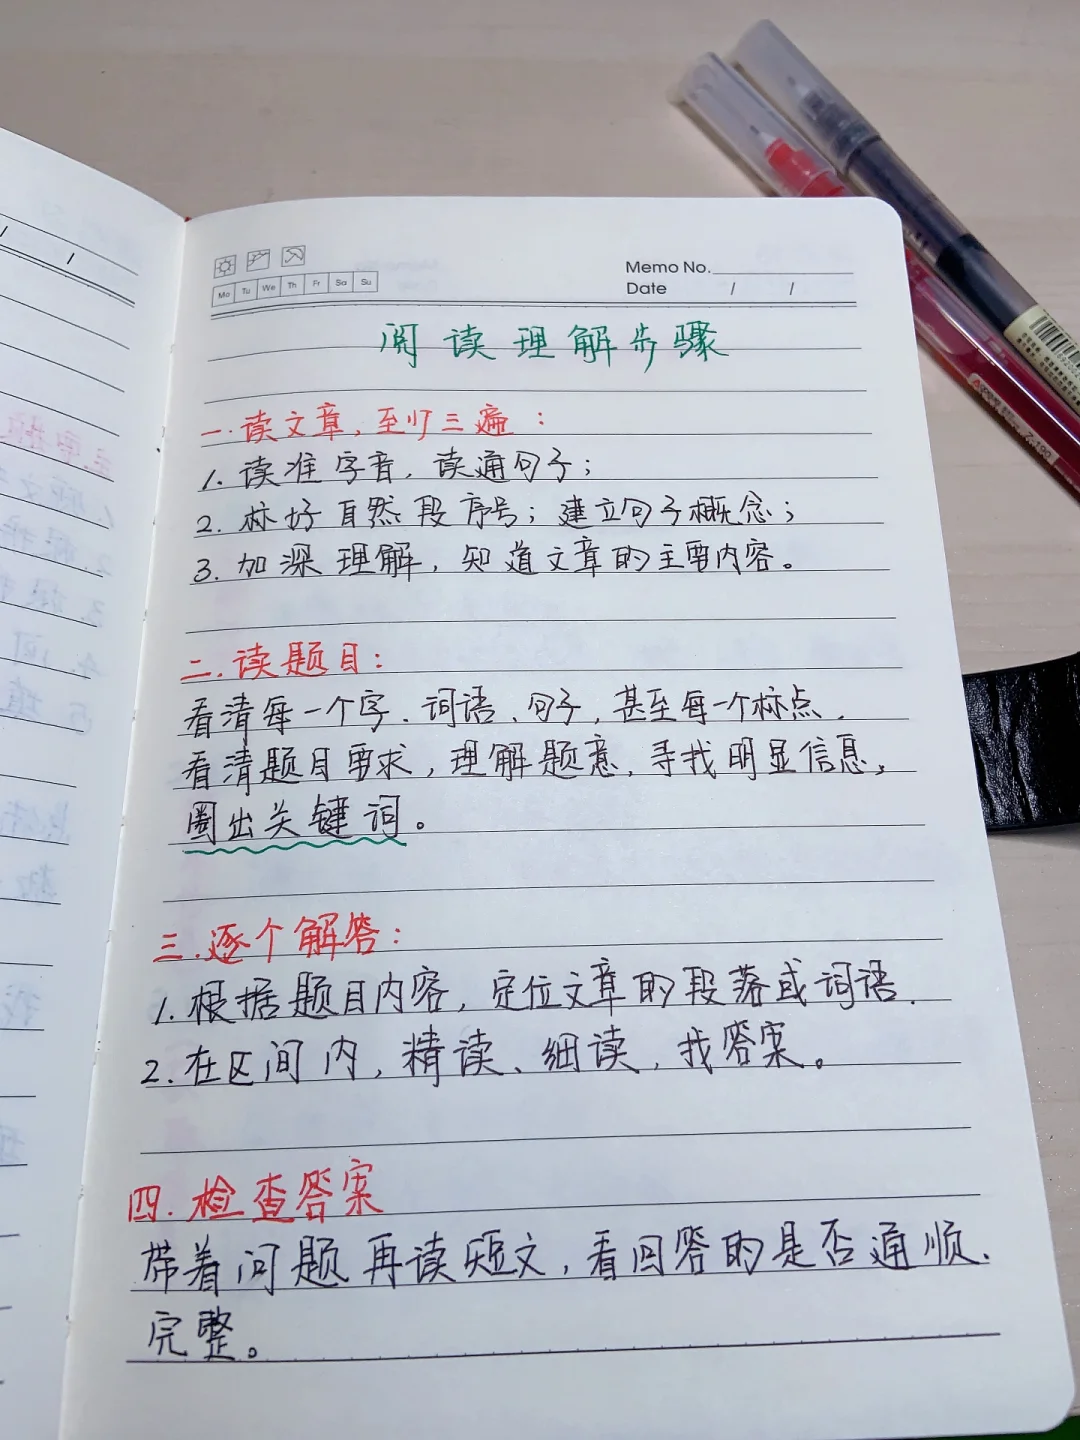 Mo Tu We Th Fr Sa Su
Memo No.
Date / /
阅读理解步骤
一.读文章,至少三遍:
1.读准字音,读通句子;
2.标好自然段序号;建立句子概念;
3.加深理解,知道文章的主要内容。
二.读题目:
看清每一个字、词语、句子,甚至每一个标点、
看清题目要求,理解题意,寻找明显信息,
圈出关键词。
三.逐个解答:
1.根据题目内容,定位文章的段落或词语.
2.在区间内,精读、细读,找答案。
四.检查答案
带着问题再读短文,看回答的是否通顺、
完整。